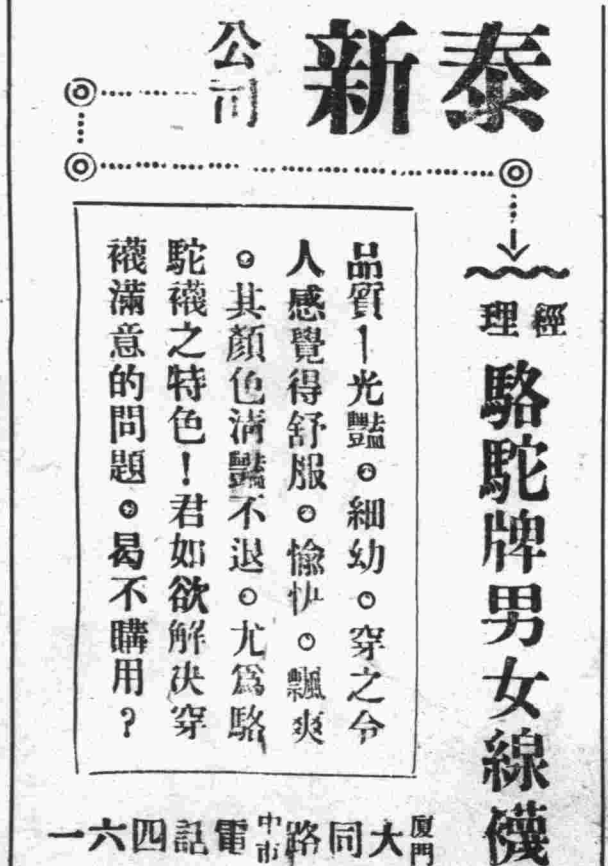 泰新公司
經理
駱駝牌男女線襪
品質ー光豔。細幼。穿之令
人感覺得舒服。愉快。飄爽
。其顏色清豔不退。尤爲駱
駝襪之特色！君如欲解决穿
襪滿意的問題。曷不購用？
廈門大同路中市電話四六一